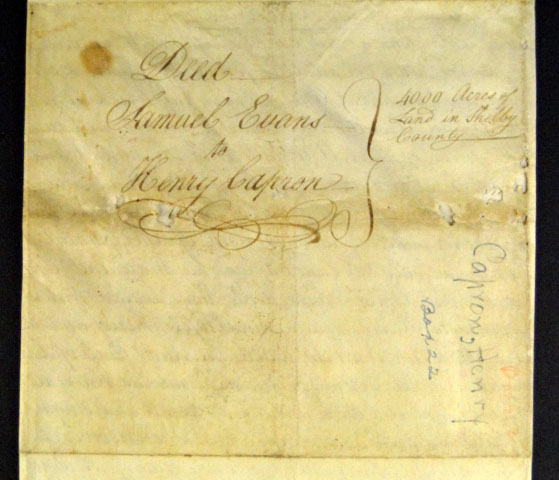 Deed
Samuel Evans
to
Henry Capron
4000 Acres of
Land in Shelby
County
Capron, Henry
Box 22